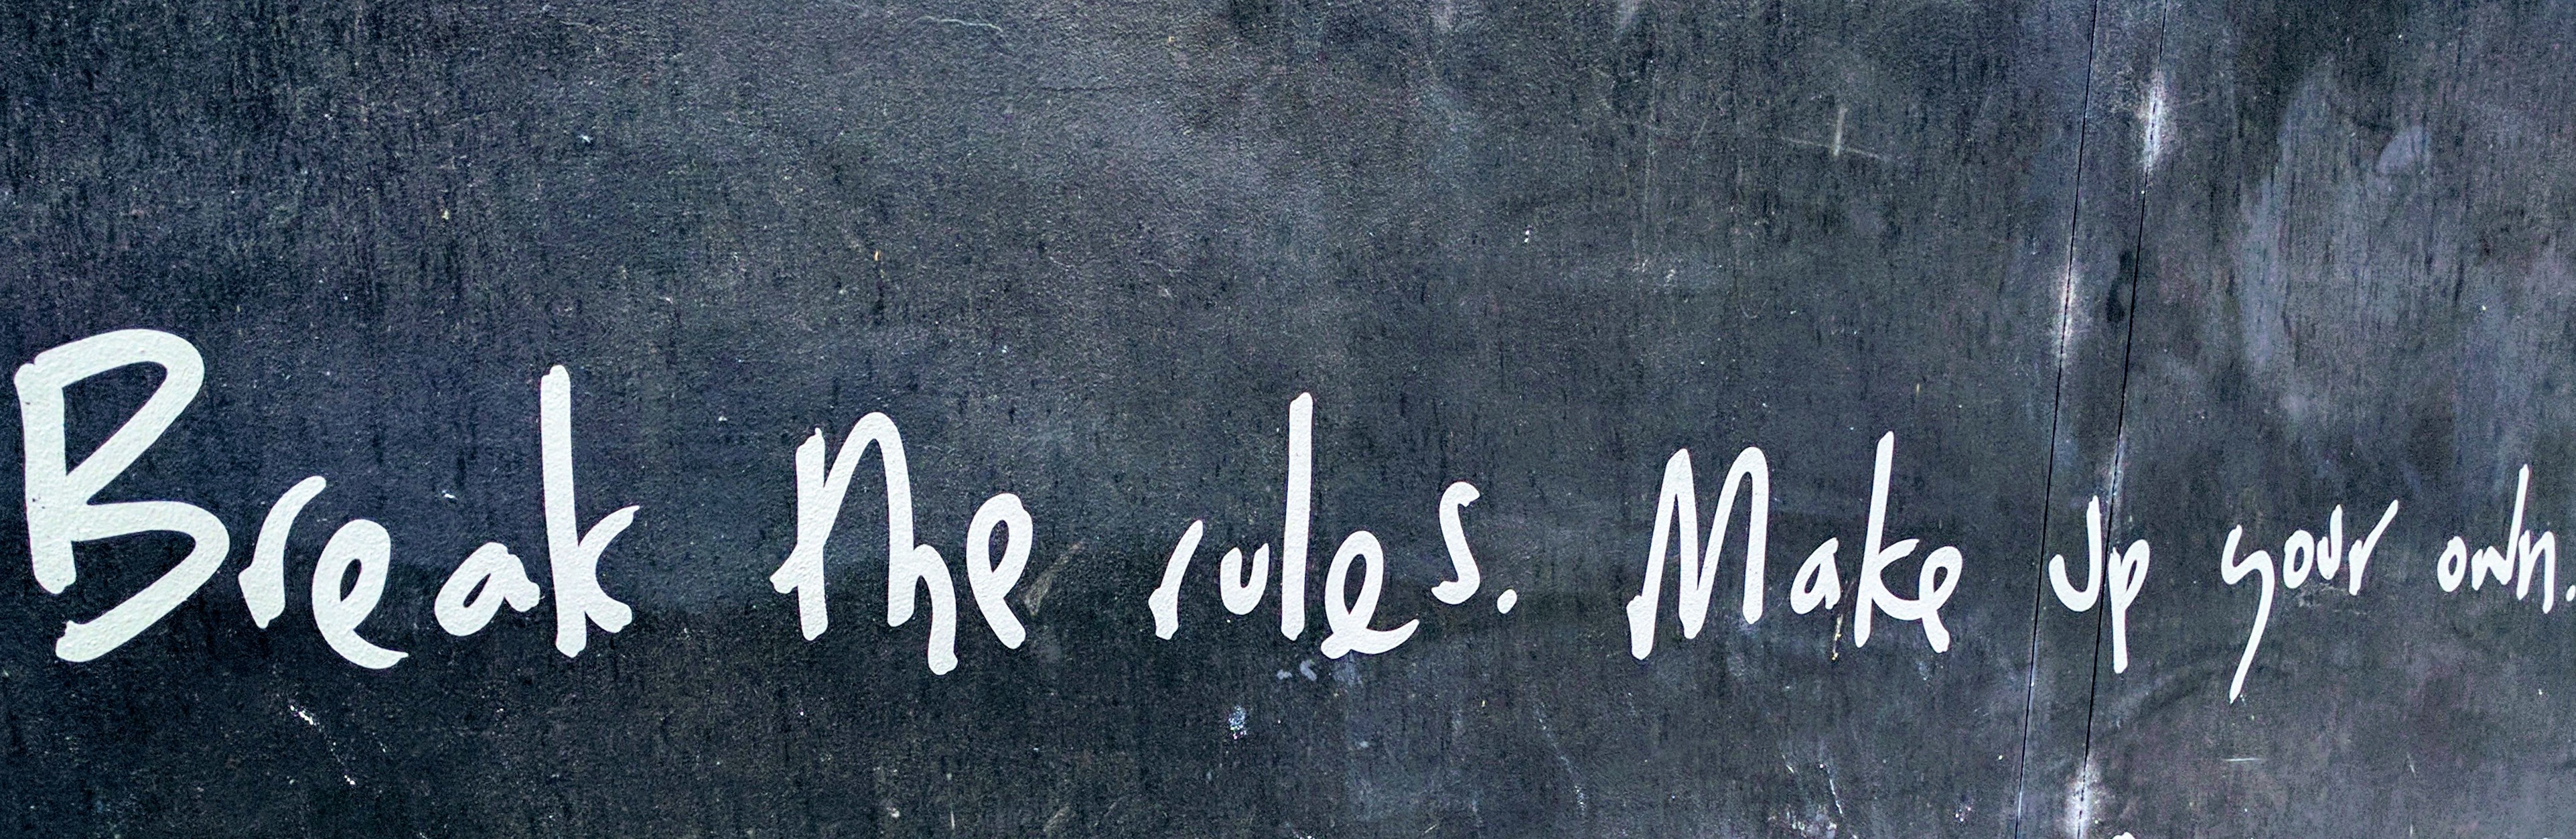 Break the rules. Make up your own.